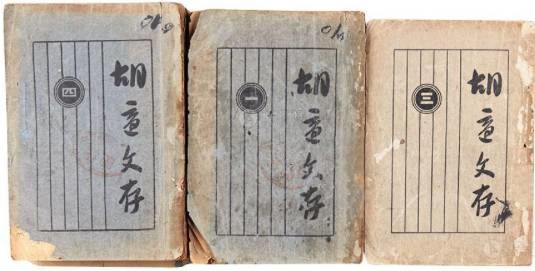 胡適文存
四
胡適文存
一
胡適文存
三